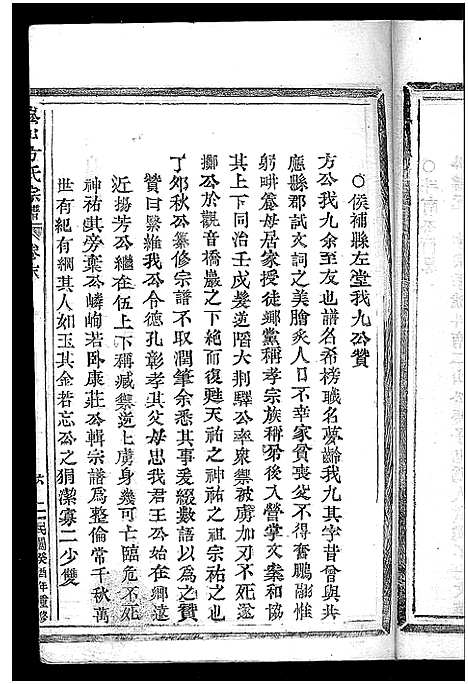 ○侯補縣左堂我九公贊
方公我九余至友也譜名希榜職名夢齡我九其字昔曾與共
應縣郡試文詞之美膾炙人口不幸家貧喪父不得奮鵬翮惟
躬畊養母居家授徒鄉黨稱孝宗族稱弟後入營掌文案和協
其上下同治壬戌髮逆陷大荆驛公率衆禦被虜不死遂
擲公於觀音橋巖之下而復甦天祐之神祐之祖宗祐之也
丁夘秋公纂修宗譜不取潤筆余悉其事爰綴數語以為之贊
贊曰緊維我公令德孔彰孝其父母忠我君王公始在鄉遠
近揚芳公繼在伍上下稱臧禦逆上虜身幾可亡臨危不死
神祐其旁葉公嶙峋若卧康莊公輯宗譜為整倫常千秋萬
世有紀有綱其人如玉其金若忘公之狷潔寡二少雙
方氏宗譜 卷
民國癸酉年重修